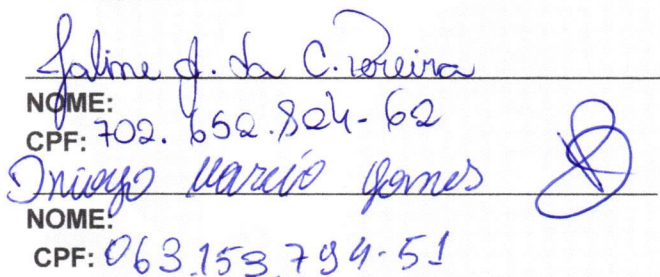 Jaline J. da C. Pereira
NOME:
CPF: 702.652.824-62
Thiago Marcio Gomes
NOME:
CPF: 063.153.794-51